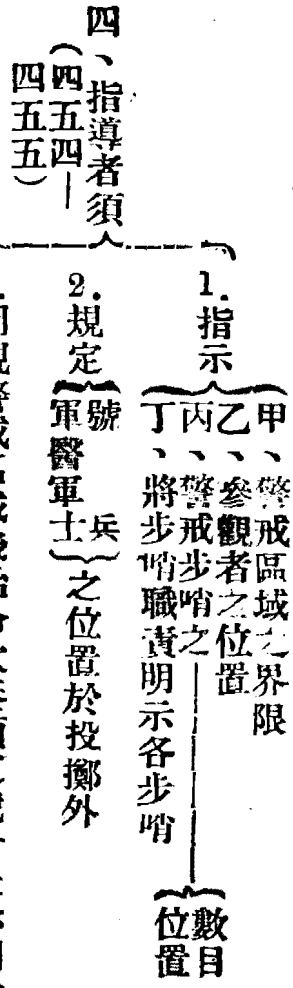 四、指導者須
（四五四—
四五五）
1.指示
甲、警戒區域之界限
乙、參觀者之位置
丙、警戒步哨之
數目
位置
丁、將步哨職責明示各步哨
2.規定
號兵
軍醫軍士
之位置於投擲外